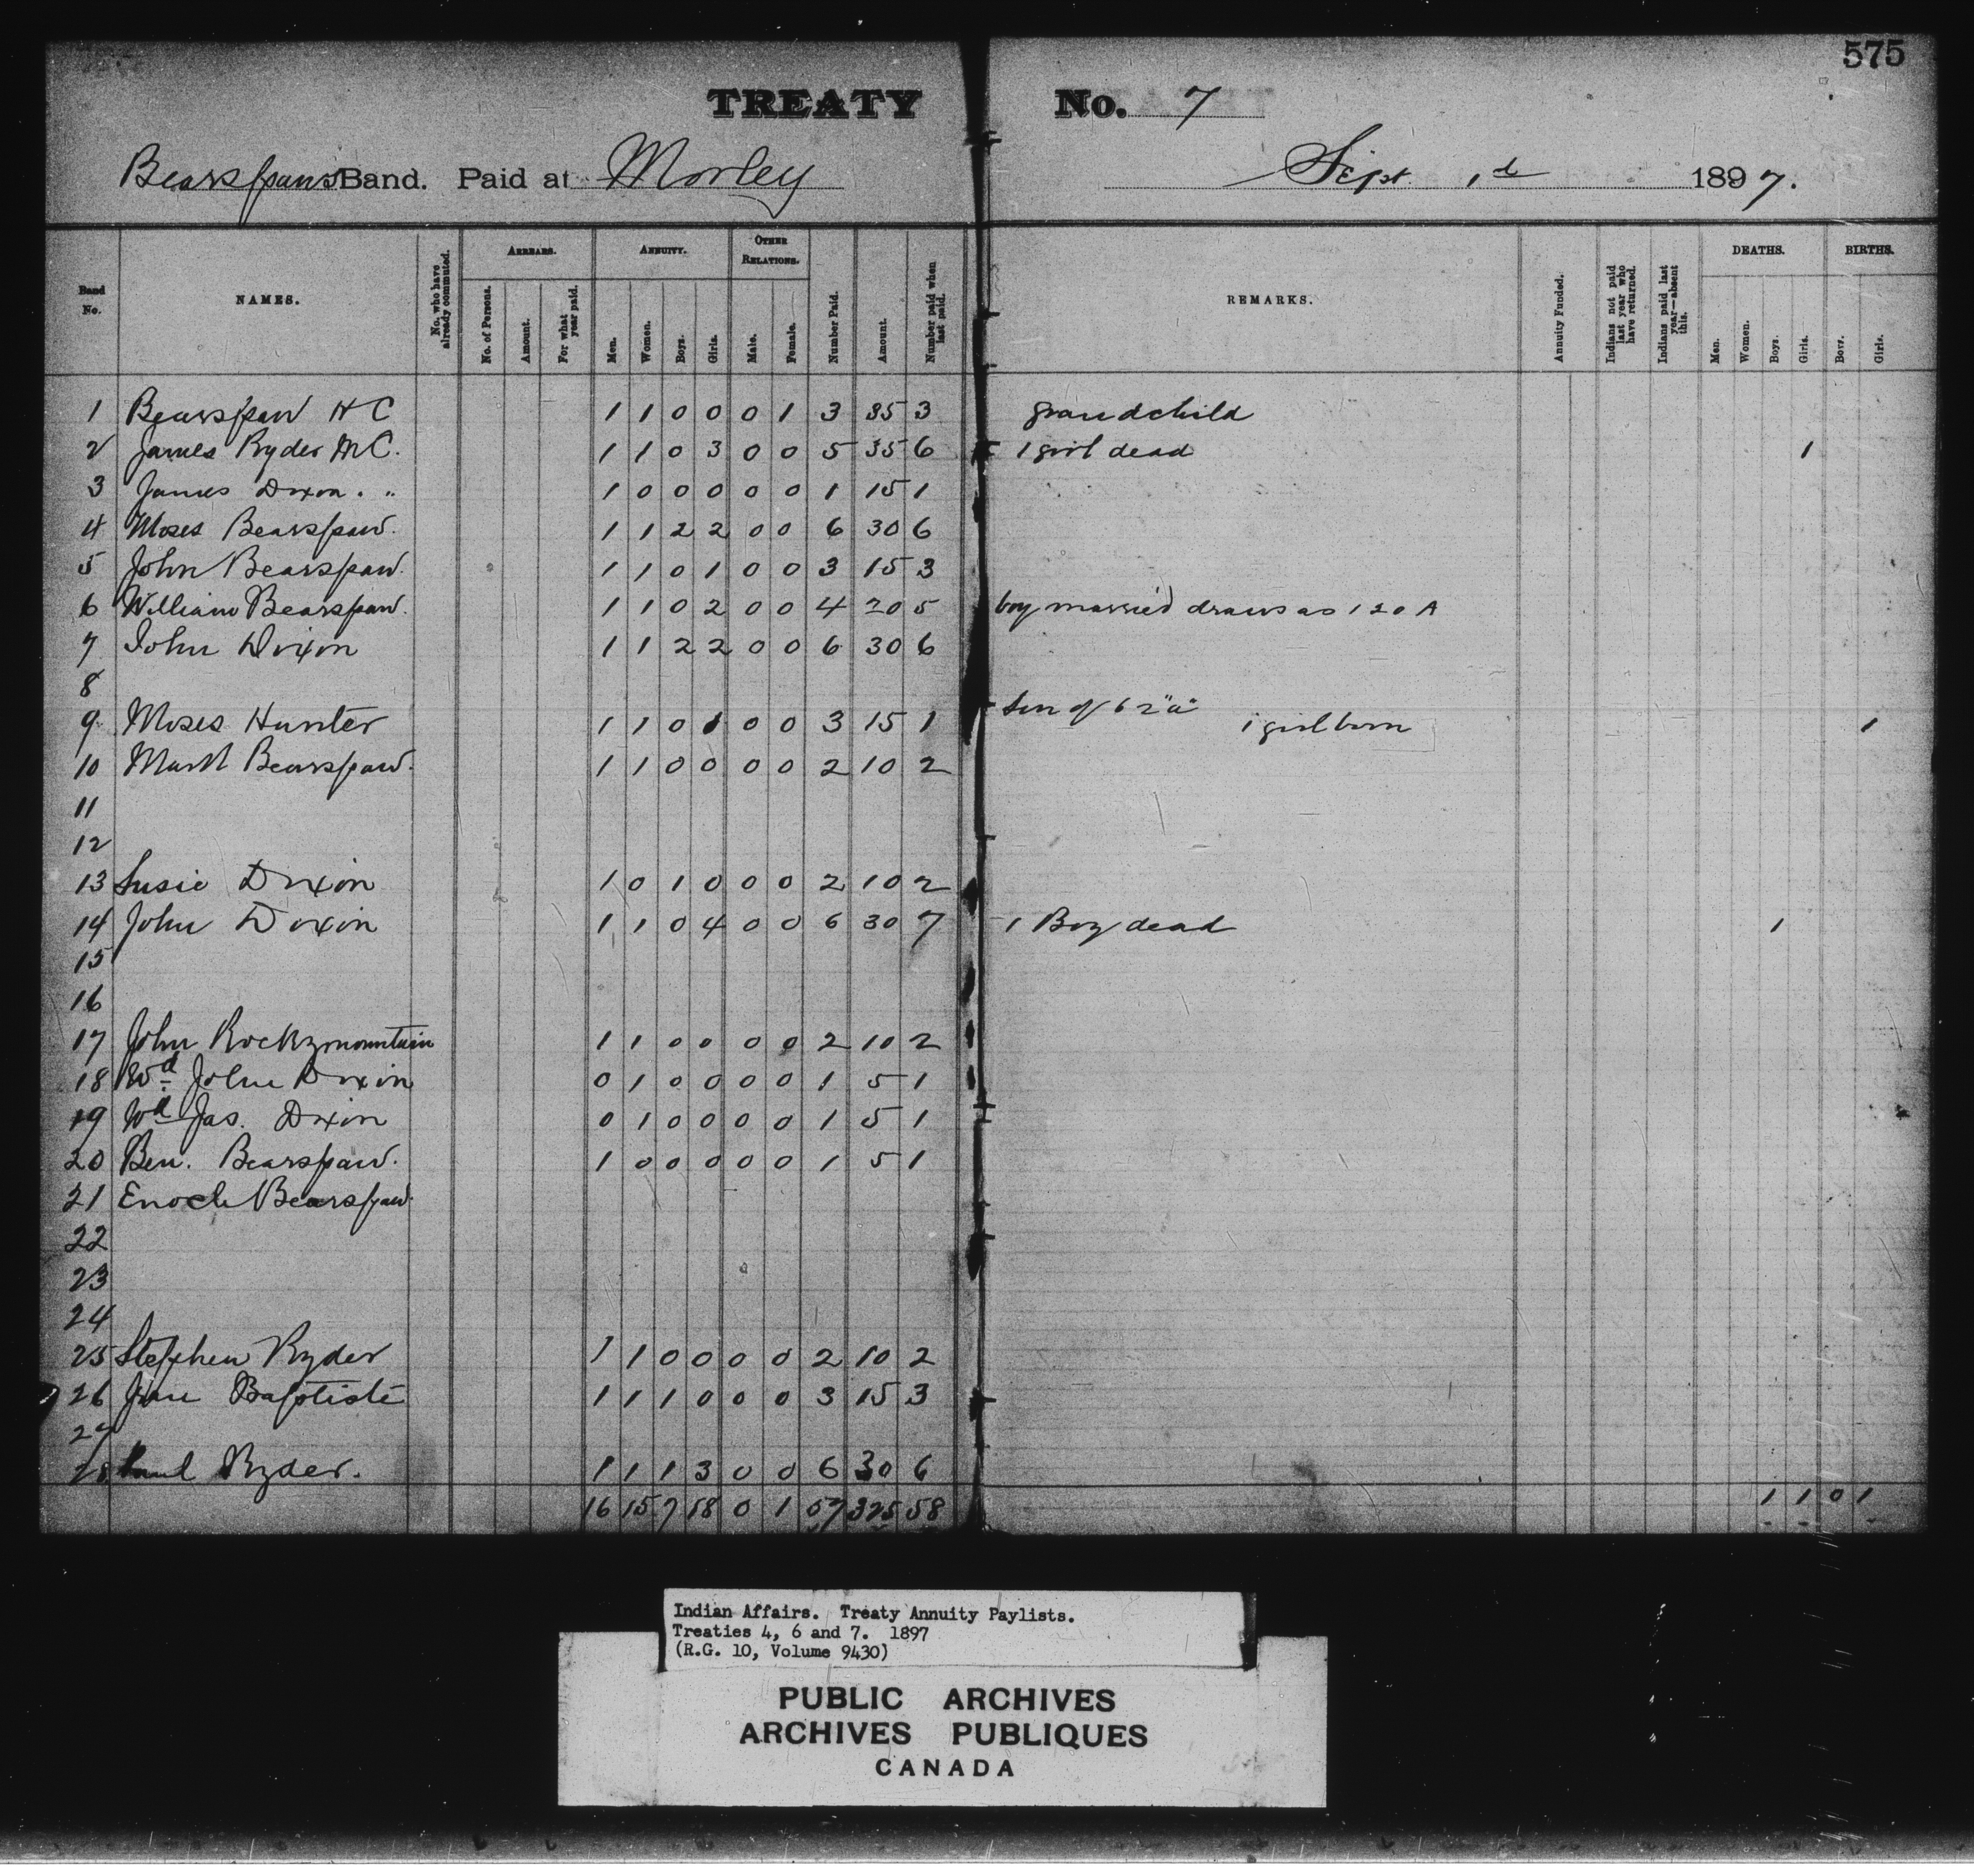 575
TREATY No. 7
Bearspaws Band. Paid at Morley Sept. 1st 1897.
Band No. NAMES. No. who have already commuted. ARREARS. No. of Persons. Amount. For what year paid. ANNUITY. Men. Women. Boys. Girls. OTHER RELATIONS. Male. Female. Number Paid. Amount. Number paid when last paid. REMARKS. Annuity Funded. Indians not paid last year who have returned. Indians paid last year—absent this. DEATHS. Men. Women. Boys. Girls. BIRTHS. Boys. Girls.
1 Bearspaw H C 1 1 0 0 0 1 3 35 3 grandchild
2 James Ryder M C. 1 1 0 3 0 0 5 35 6 1 girl dead 1
3 James Dixon . " 1 0 0 0 0 0 1 15 1
4 Moses Bearspaw. 1 1 2 2 0 0 6 30 6
5 John Bearspaw. 1 1 0 1 0 0 3 15 3
6 William Bearspaw. 1 1 0 2 0 0 4 20 5 boy married draws as 120 A
7 John Dixon 1 1 2 2 0 0 6 30 6
8
9 Moses Hunter 1 1 0 1 0 0 3 15 1 Son of 62 "a" 1 girl born 1
10 Mark Bearspaw. 1 1 0 0 0 0 2 10 2
11
12
13 Susie Dixon 1 0 1 0 0 0 2 10 2
14 John Dixon 1 1 0 4 0 0 6 30 7 1 Boy dead 1
15
16
17 John Rockymountain 1 1 0 0 0 0 2 10 2
18 Wd John Dixon 0 1 0 0 0 0 1 5 1
19 Wd Jas. Dixon 0 1 0 0 0 0 1 5 1
20 Ben. Bearspaw. 1 0 0 0 0 0 1 5 1
21 Enoch Bearspaw.
22
23
24
25 Stephen Ryder 1 1 0 0 0 0 2 10 2
26 Baptiste 1 1 1 0 0 0 3 15 3
27
28 Paul Ryder. 1 1 1 3 0 0 6 30 6
16 15 7 18 0 1 57 325 58 1 1 0 1
Indian Affairs. Treaty Annuity Paylists.
Treaties 4, 6 and 7. 1897
(R.G. 10, Volume 9430)
PUBLIC ARCHIVES
ARCHIVES PUBLIQUES
CANADA